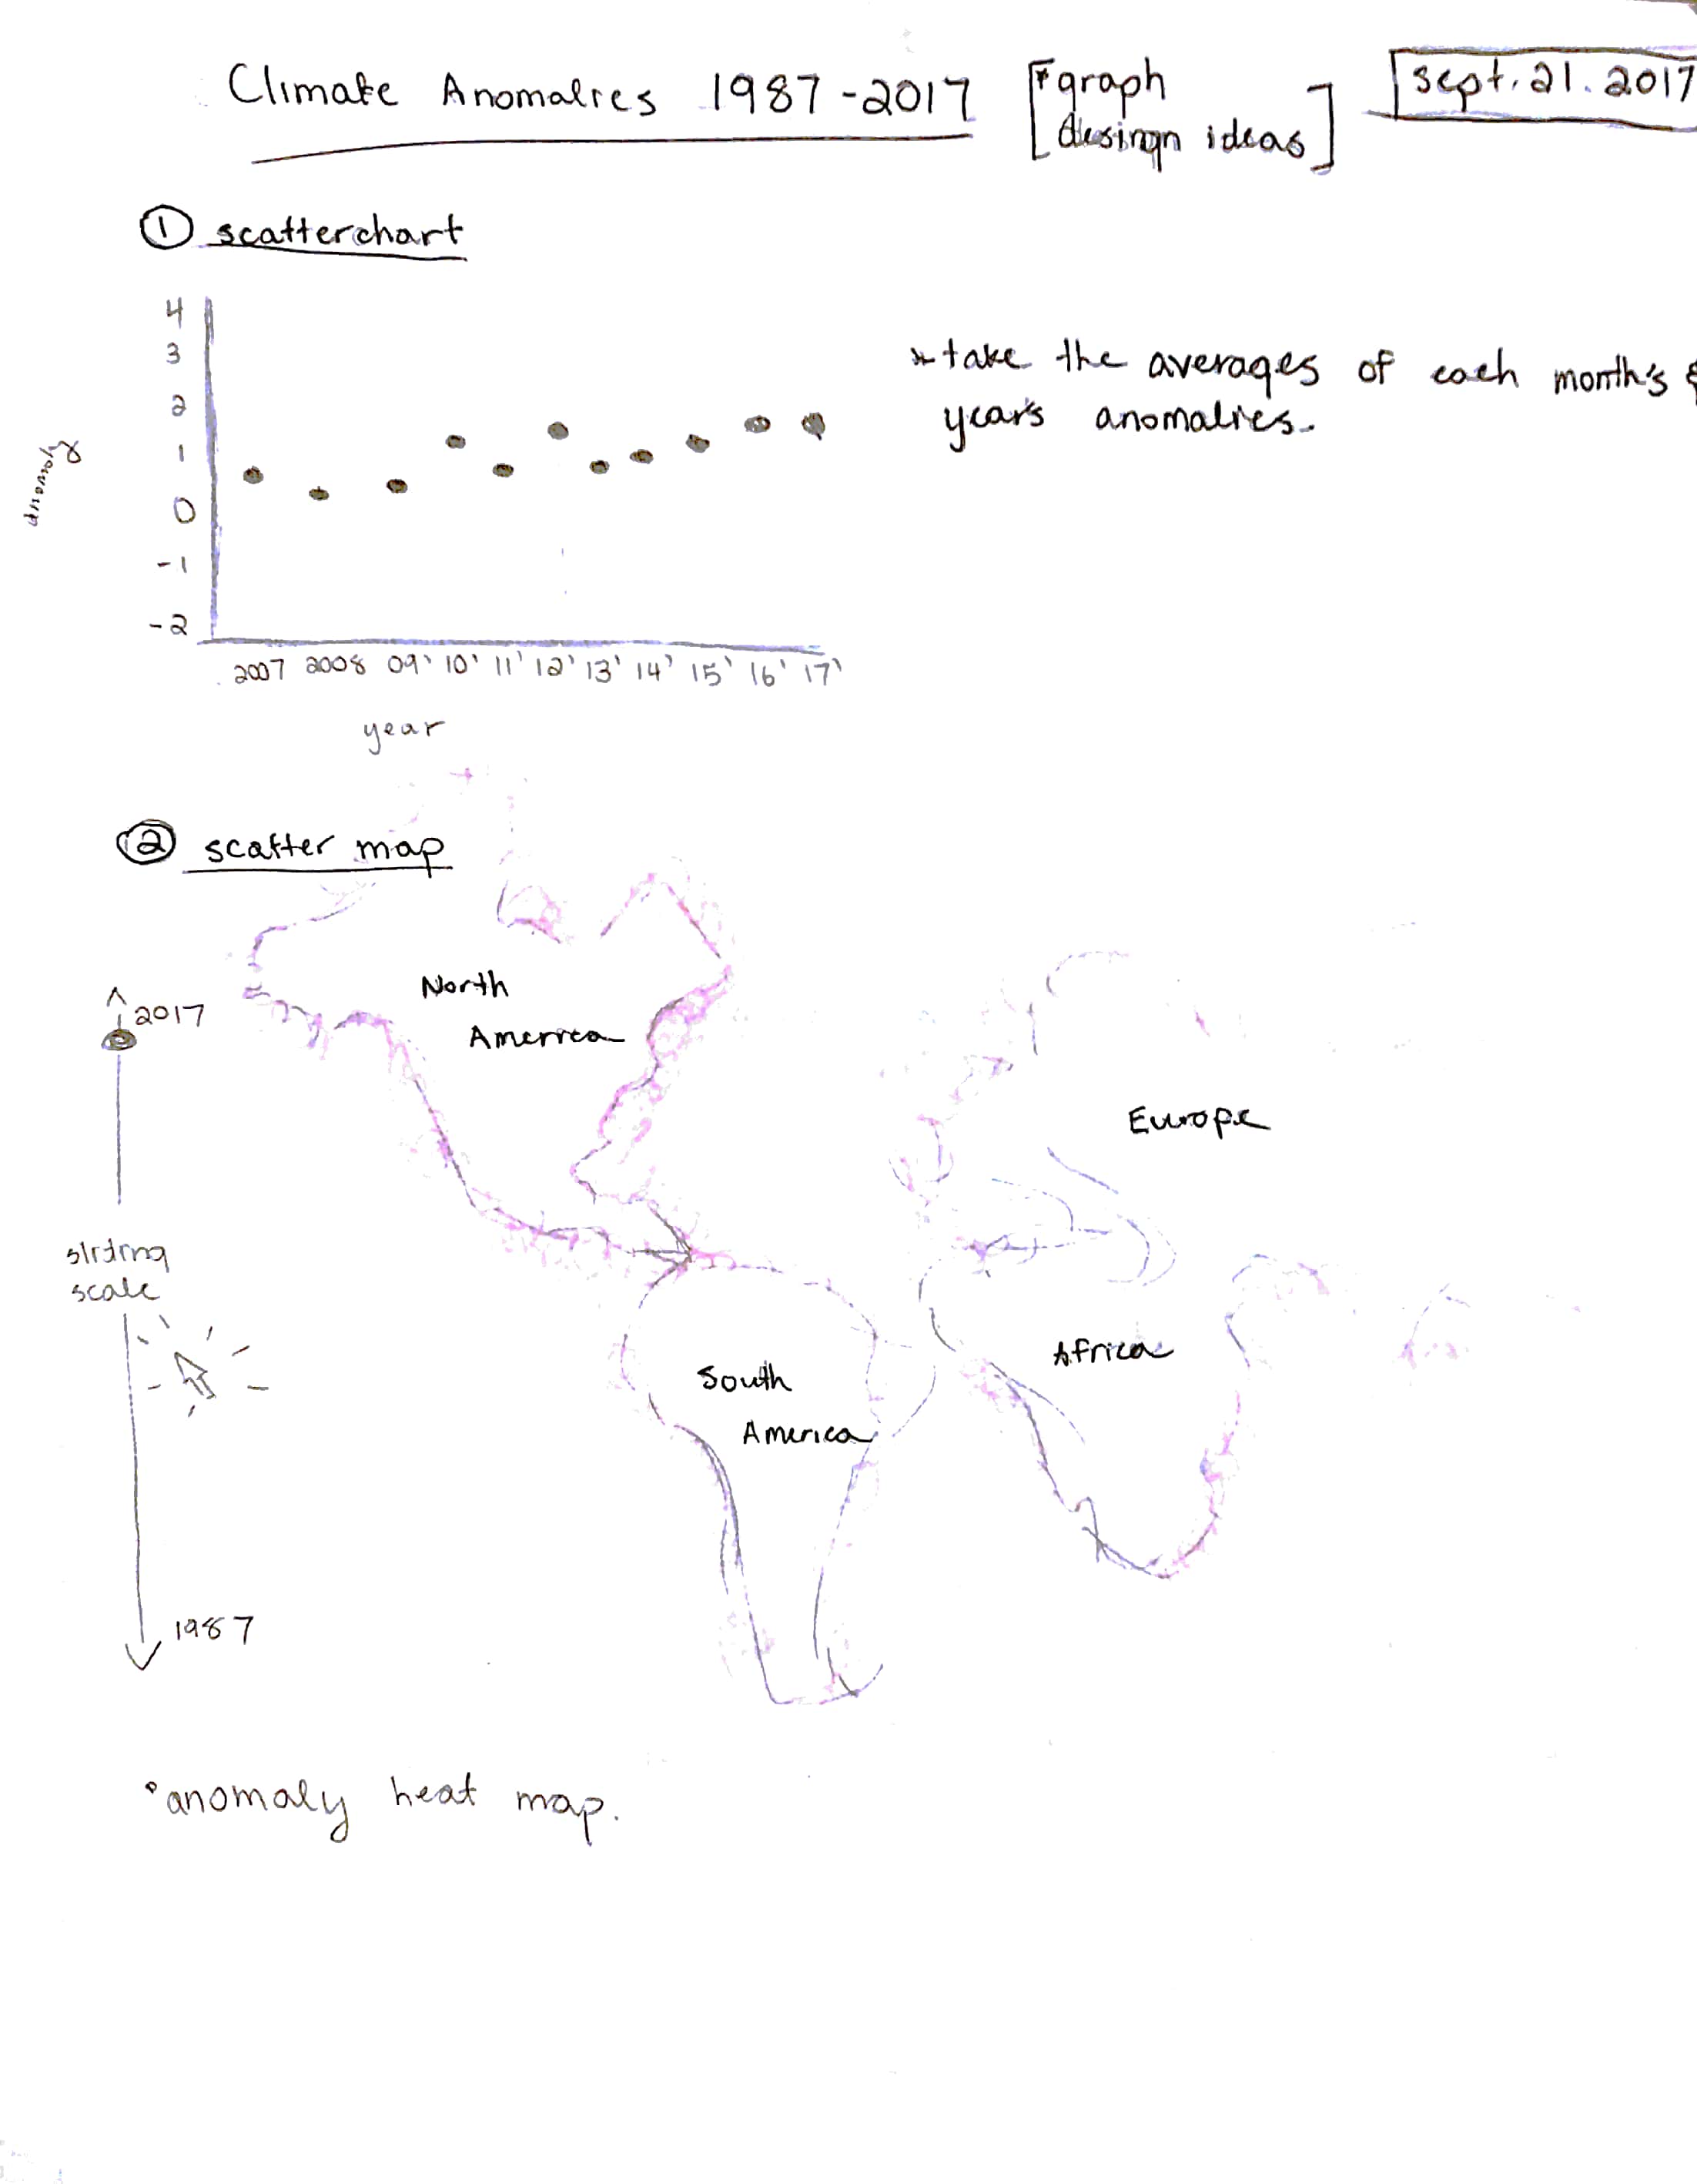 Climate Anomalies 1987-2017
[*graph
desingn ideas]
sept. 21. 2017
① scatterchart
4
3
2
1
0
-1
-2
anomoly
2007 2008 09' 10' 11' 12' 13' 14' 15' 16' 17'
year
* take the averages of each month's &
year's anomalies.
② scatter map
North
America
2017
Europe
sliding
scale
Africa
South
America
1987
°anomaly heat map.